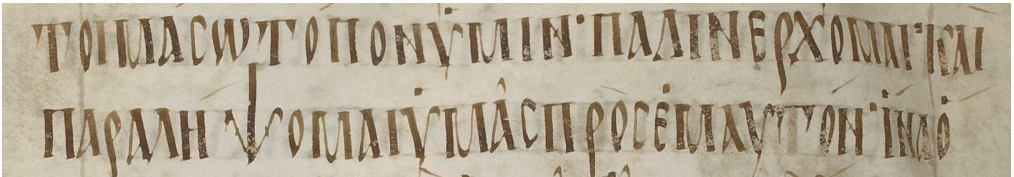 ΤΟΙΜΑCΩΤΟΠΟΝΫΜΙΝ·ΠΑΛΙΝΕΡΧΟΜΑΙ·ΚΑΙ
ΠΑΡΑΛΗΨΟΜΑΙΫΜΑCΠΡΟCΕΜΑΥΤΟΝ·ΪΝΑΟ